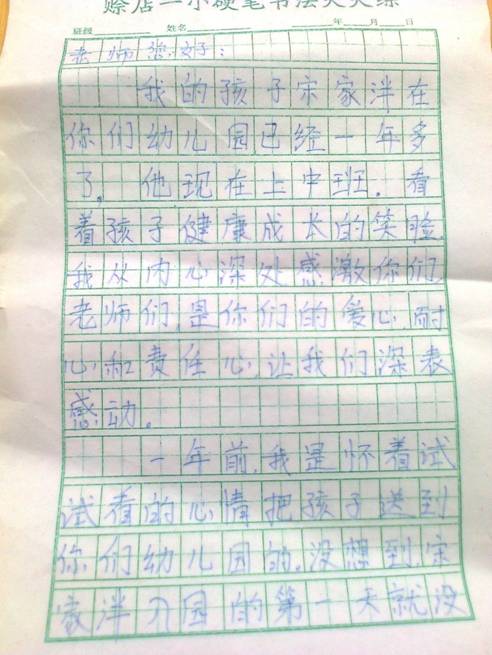 赊店一小硬笔书法天天练
班级 姓名 年 月 日
老师您好:
我的孩子宋家洋在
你们幼儿园已经一年多
了。他现在上中班。看
着孩子健康成长的笑脸
我从内心深处感激你们,
老师们,是你们的爱心,耐
心和责任心让我们深表
感动。
一年前,我是怀着试
试看的心情把孩子送到
你们幼儿园的,没想到宋
家洋入园的第一天就没